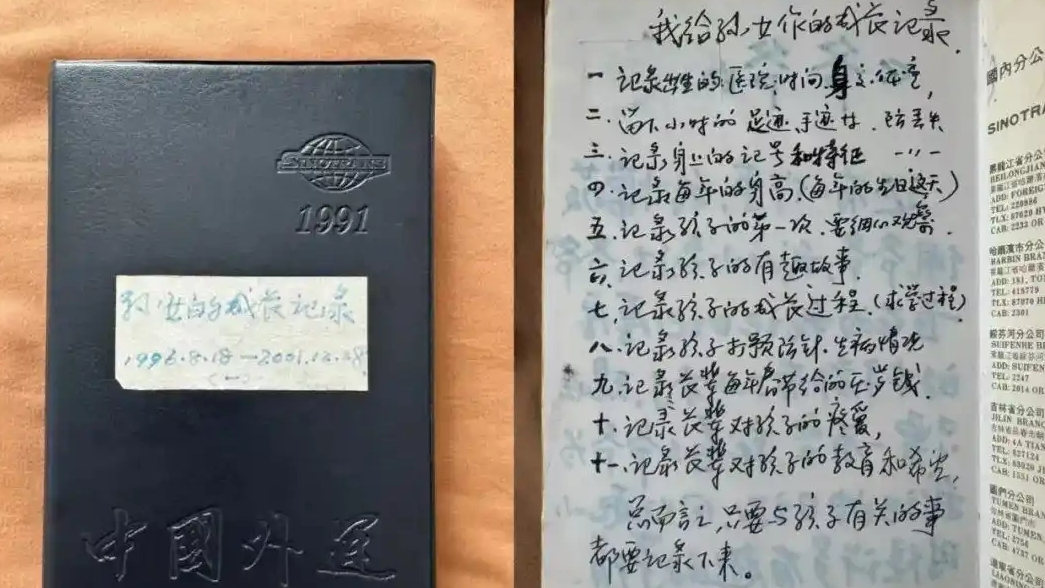 SINOTRANS
1991
孙女的成长记录
1996.8.18—2001.12.28
(一)
中國外运
我给孙女作的成长记录
一、记录出生的医院、时间、身高、体重,
二、留下小时的足迹、手迹
三、记录身上的记号和特征 -〃-
四、记录每年的身高,(每年的生日这天)
五、记录孩子的第一次,要细心观察.
六、记录孩子的有趣故事.
七、记录孩子的成长过程.(求学过程)
八、记录孩子打预防针.生病情况
九、记录长辈每年春节给的压岁钱.
十、记录长辈对孩子的疼爱,
十一、记录长辈对孩子的教育和希望,
总而言之,只要与孩子有关的事
都要记录下来。
國內分公
SINOTRA
黑龍江省分公
HEILONGJIAN
ADD: FOREIG
TEL: 220886
TLX: 87020 HY
CAB: 2233 OR
哈爾濱市分公
HARBIN BRAN
ADD: 181, TO
TEL: 418779
TLX: 87070 H
CAB: 2301
綏芬河分公司
SUIFENHE BR
ADD: SUIFEN
TEL: 2247
CAB: 2014 OR
吉林省分公司
JILIN BRANC
ADD: 4A TIAN
TEL: 827124
TLX: 83020 JI
CAB: 1531 OR
圖們分公司
TUMEN BRAN
ADD: TUMEN
TEL: 2756
CAB: 4737 OR
遼寧省分公
LIAONING